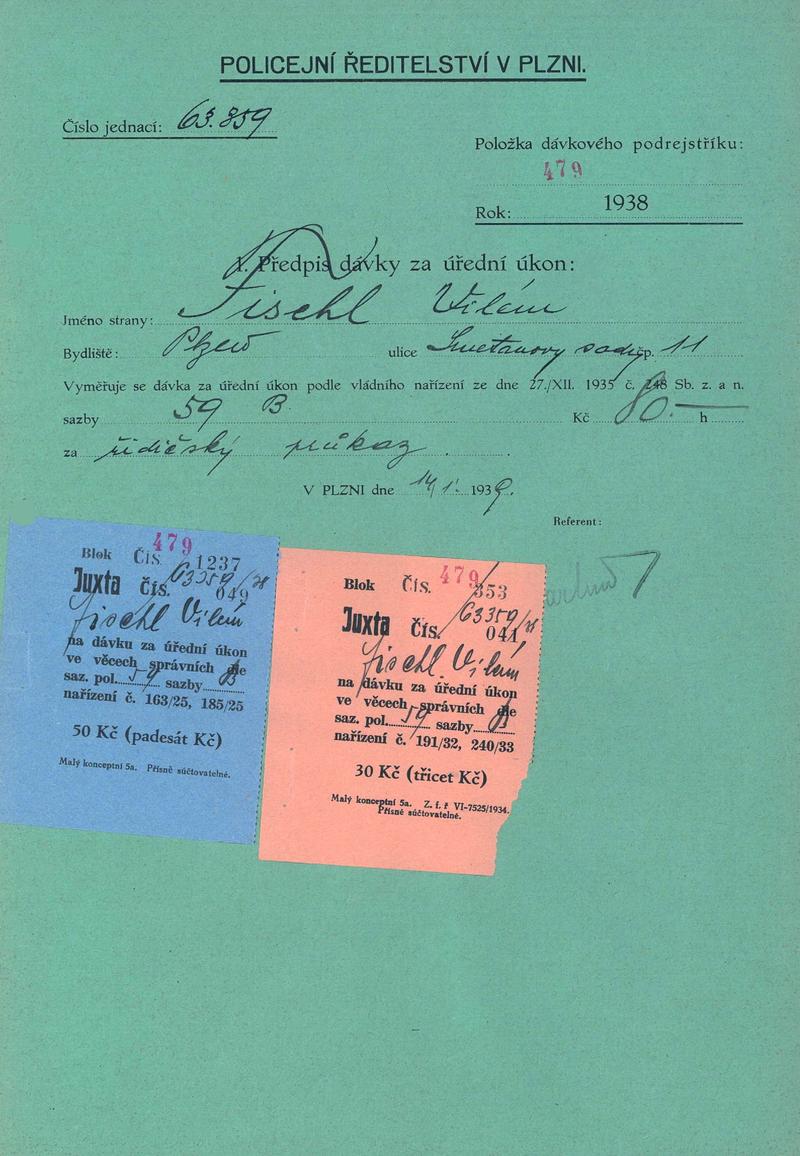 POLICEJNÍ ŘEDITELSTVÍ V PLZNI.
Číslo jednací: 63.859
Položka dávkového podrejstříku:
479
Rok: 1938
1. Předpis dávky za úřední úkon:
Jméno strany: Fischl Vilém
Bydliště: Plzeň ulice Smetanovy sady čp. 11
Vyměřuje se dávka za úřední úkon podle vládního nařízení ze dne 27./XII. 1935 č. 248 Sb. z. a n.
sazby 59 B Kč 80.— h
za řidičský průkaz
V PLZNI dne 14/1. 1939.
Referent:
479
Blok Čís. 1237
Juxta čís. 63359/38
049
Fischl Vilém
na dávku za úřední úkon
ve věcech správních dle
saz. pol. 59 sazby B
nařízení č. 163/25, 185/25
50 Kč (padesát Kč)
Malý konceptní 5a. Přísně súčtovatelné.
479
Blok Čís. 353
63359/38
Juxta Čís. 041
Fischl Vilém
na dávku za úřední úkon
ve věcech správních dle
saz. pol. 59 sazby B
nařízení č. 191/32, 240/33
30 Kč (třicet Kč)
Malý konceptní 5a. Z. f. ř VI-7525/1934.
Přísně súčtovatelné.